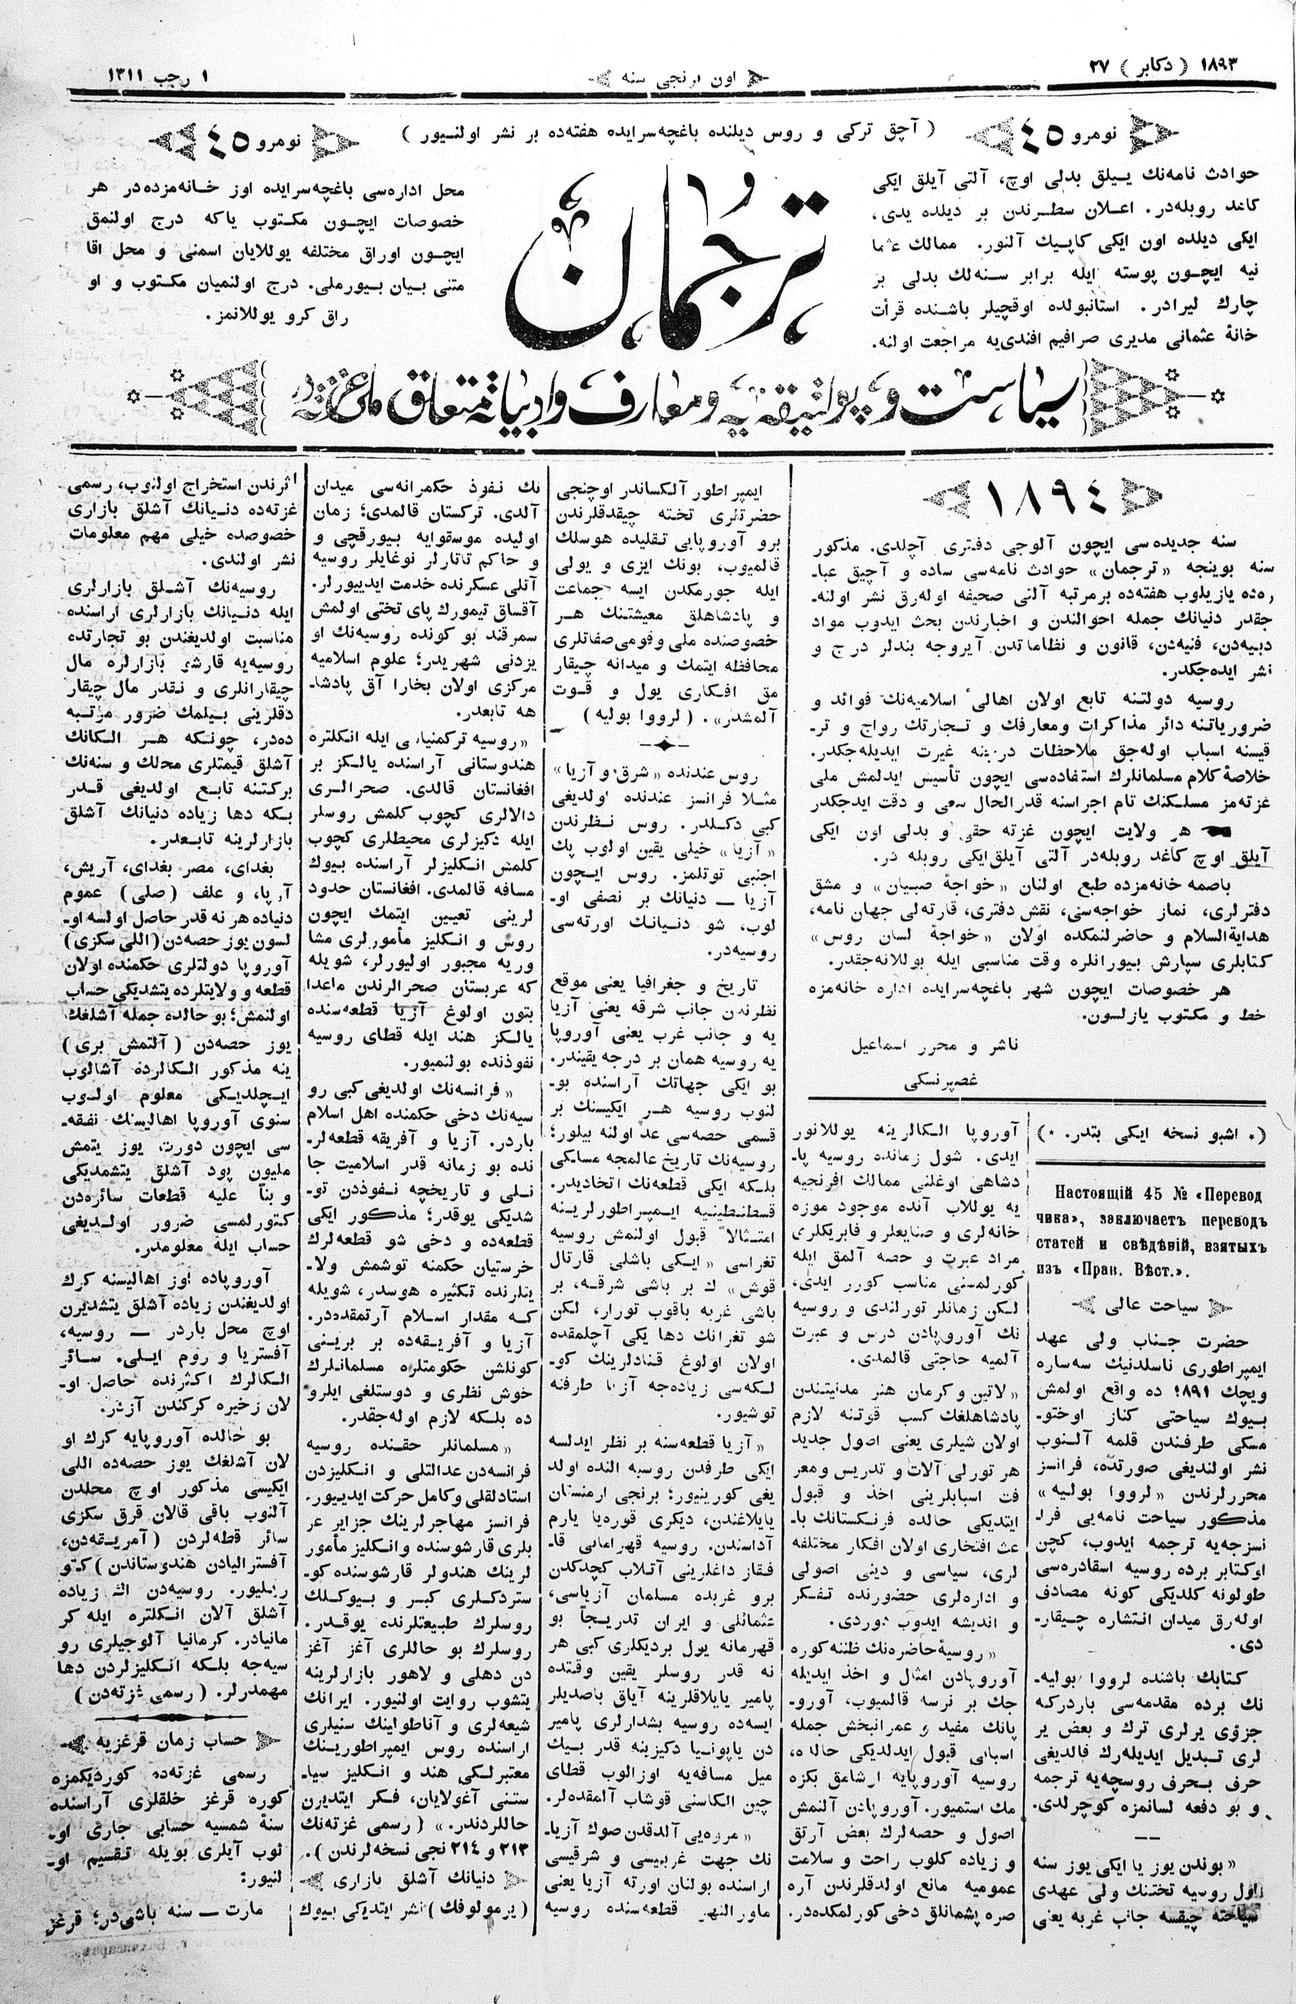 ١٨٩٣ ( دكابر ) ٢٧
اون برنجى سنه
١ رجب ١٣١١
نومرو ٤٥
( آچق تركى و روس ديلنده باغچه‌سرايده هفته‌ده بر نشر اولنيور )
نومرو ٤٥
حوادث نامه‌نك ييلق بدلى اوچ، آلتى آيلق ايكى
كاغد روبله‌در. اعلان سطرندن بر ديلده يدى،
ايكى ديلده اون ايكى كاپيك آلنور. ممالك عثما
نيه ايچون پوسته ايله برابر سنه‌لك بدلى بر
چارك ليرادر. استانبولده اوقچيلر باشنده قرأت
خانهٔ عثمانى مديرى صرافيم افندى‌يه مراجعت اولنه.
ترجمان
محل اداره‌سى باغچه‌سرايده اوز خانه‌مزده‌در هر
خصوصات ايچون مكتوب ياكه درج اولنمق
ايچون اوراق مختلفه يوللايان اسمنى و محل اقا
متنى بيان بيورملى. درج اولنميان مكتوب و او
راق كرو يوللانمز.
سياست و پوليتيقه‌يه و معارف و ادبياته متعلق ملى غزته‌در
١٨٩٤
سنه جديده‌سى ايچون آلوجى دفترى آچلدى. مذكور
سنه بوينجه «ترجمان» حوادث نامه‌سى ساده و آچيق عبا-
ره‌ده يازيلوب هفته‌ده برمرتبه آلتى صحيفه اوله‌رق نشر اولنه-
جقدر دنيانك جمله احوالندن و اخبارندن بحث ايدوب مواد
دبيه‌دن، فنيه‌دن، قانون و نظاماتدن آيروجه بندلر درج و
نشر ايده‌جكدر.
روسيه دولتنه تابع اولان اهالىٔ اسلاميه‌نك فوائد و
ضرورياتنه دائر مذاكرات ومعارفك و تجارتك رواج و تر-
قيسنه اسباب اوله‌جق ملاحظات درجنه غيرت ايديله‌جكدر.
خلاصهٔ كلام مسلمانلرك استفاده‌سى ايچون تأسيس ايدلمش ملى
غزته‌مز مسلكنك تام اجراسنه قدر الحال سعى و دقت ايدجكدر
هر ولايت ايچون غزته حقى و بدلى اون ايكى
آيلق اوچ كاغد روبله‌در آلتى آيلق ايكى روبله در.
باصمه خانه‌مزده طبع اولنان «خواجهٔ صبيان» و مشق
دفترلرى، نماز خواجه‌سى، نقش دفترى، قارته‌لى جهان نامه،
هداية السلام و حاضرلنمكده اولان «خواجهٔ لسان روس»
كتابلرى سپارش بيورانلره وقت مناسبى ايله يوللانه‌جقدر.
هر خصوصات ايچون شهر باغچه‌سرايده اداره خانه‌مزه
خط و مكتوب يازلسون.
ناشر و محرر اسماعيل
غصپرنسكى
(• اشبو نسخه ايكى بتدر. •)
Настоящій 45 № «Перевод
чика», заключаетъ переводъ
статей и свѣдѣній, взятыхъ
изъ «Прав. Вѣст.».
سياحت عالى
حضرت جناب ولى عهد
ايمپراطورى ناسلدنيك سه‌ساره
ويچك ١٨٩١ ده واقع اولمش
بيوك سياحتى كناز اوختو-
مسكى طرفندن قلمه آلنوب
نشر اولنديغى صورتده، فرانسز
محررلرندن «لرووا بوليه»
مذكور سياحت نامه‌يى فرا-
نسزجه‌يه ترجمه ايدوب، كچن
اوكتابر برده روسيه اسقادره‌سى
طولونه كلديكى كونه مصادف
اوله‌رق ميدان انتشاره چيقار-
دى.
كتابك باشنده لرووا بوليه-
نك برده مقدمه‌سى باردركه
جزؤى يرلرى ترك و بعض ير
لرى تبديل ايديله‌رك قالديغى
حرف بحرف روسچه‌يه ترجمه
و بو دفعه لسانمزه كوچرلدى.
«بوندن يوز يا ايكى يوز سنه
اول روسيه تختنك ولى عهدى
سياحته چيقسه جانب غربه يعنى
آوروپا الكالرينه يوللانور
ايدى. شول زمانده روسيه پا-
دشاهى اوغلنى ممالك افرنجيه
يه يوللاب آنده موجود موزه
خانه‌لرى و صنايعلر و فابريكلرى
مراد عبرت و حصه آلمق ايله
كورلمسنى مناسب كورر ايدى،
لكن زمانلر تورلندى و روسيه
نك آوروپادن درس و عبرت
آلميه حاجتى قالمدى.
«لاتين و كرمان هنر مدنيتندن
پادشاهلغك كسب قوتنه لازم
اولان شيلرى يعنى اصول جديد
هر تورلى آلات و تدريس و معر
فت اسبابلرينى اخذ و قبول
ايتديكى حالده فرنكستانك با-
عث افتخارى اولان افكار مختلفه
لرى، سياسى و دينى اصولى
و اداره‌لرى حضورنده تفكر
و انديشه ايدوب دوردى.
«روسيهٔ حاضره‌نك ظننه كوره
آوروپادن امثال و اخذ ايديله
جك بر نرسه قالميوب، آورو-
پانك مفيد و عمرانبخش جمله
اسبابى قبول ايدلديكى حالده،
روسيه آوروپايه ارشامق بكزه
مك استميور. آوروپادن آلنمش
اصول و حصه‌لرك بعض آرتق
و زياده كلوب راحت و سلامت
عموميه مانع اولدقلرندن آره
صره پشمانلق دخى كورلمكده‌در.
ايمپراطور آلكساندر اوچنجى
حضرتلرى تخته چيقدقلرندن
برو آوروپايى تقليده هوسلك
قالميوب، بونك ايزى و يولى
ايله جورمكدن ايسه جماعت
و پادشاهلق معيشتنك هر
خصوصنده ملى و قومى صفاتلرى
محافظه ايتمك و ميدانه چيقار
مق افكارى يول و قوت
آلمشدر». (لرووا بوليه)
روس عندنده «شرق و آزيا»
مثلا فرانسز عندنده اولديغى
كبى دكلدر. روس نظرندن
«آزيا» خيلى يقين اولوب پك
اجنبى توتلمز. روس ايچون
آزيا — دنيانك بر نصفى او-
لوب، شو دنيانك اورته‌سى
روسيه‌در.
تاريخ و جغرافيا يعنى موقع
نظرندن جانب شرقه يعنى آزيا
يه و جانب غرب يعنى آوروپا
يه روسيه همان بر درجه يقيندر.
بو ايكى جهاتك آراسنده بو-
لنوب روسيه هر ايكيسنك بر
قسمى حصه‌سى عد اولنه بيلور؛
روسيه‌نك تاريخ عالمجه مسلكى
بلكه ايكى قطعه‌نك اتحاديدر.
قسطنطنيه ايمپراطورلرينه
امتثالاً قبول اولنمش روسيه
تغراسى «ايكى باشلى قارتال
قوش» ك بر باشى شرقه، بر
باشى غربه باقوب تورار، لكن
شو تغرانك دها يكى آچلمقده
اولان اولوغ قنادلرينك كو-
لكه‌سى زياده‌جه آزيا طرفنه
توشيور.
«آزيا قطعه‌سنه بر نظر ايدلسه
ايكى طرفدن روسيه النده اولد
يغى كورينيور؛ برنجى ارمنستان
يايلاغندن، ديكرى قوره‌يا يارم
آداسندن. روسيه قهرمانى قا-
فقاز داغلرينى آتلاب كچدكدن
برو غربده مسلمان آزياسى،
عثمانلى و ايران تدريجاً بو
قهرمانه يول بردكلرى كبى هر
نه قدر روسلر يقين وقتده
پامير يايلاقلرينه آياق باصديلر
ايسه‌ده روسيه بشدارلرى پامير
دن ياپونيا دكيزينه قدر بيك
ميل مسافه‌يه اوزالوب قطاى
چين الكاسنى قوشاب آلمقده‌لر.
«مروه‌يى آلدقدن صوك آزيا-
نك جهت غربيسى و شرقيسى
اراسنده بولنان اورته آزيا يعنى
ماورالنهر قطعه‌سنده روسيه
نك نفوذ حكمرانه‌سى ميدان
آلدى. تركستان قالمدى؛ زمان
اوليده موسقوايه بيورقچى و
و حاكم تاتارلر نوغايلر روسيه
آتلى عسكرنده خدمت ايدييورلر.
آقساق تيمورك پاى تختى اولمش
سمرقند بو كونده روسيه‌نك او
يزدنى شهريدر؛ علوم اسلاميه
مركزى اولان بخارا آق پادشا-
هه تابعدر.
«روسيه تركمنياسى ايله انكلتره
هندوستانى آراسنده يالكز بر
افغانستان قالدى. صحرالرى
دالالرى كچوب كلمش روسلر
ايله دكيزلرى محيطلرى كچوب
كلمش انكليزلر آراسنده بيوك
مسافه قالمدى. افغانستان حدود
لرينى تعيين ايتمك ايچون
روس و انكليز مأمورلرى مشا
وريه مجبور اوليورلر، شويله
كه عربستان صحرالرندن ماعدا
بتون اولوغ آزيا قطعه‌سنده
يالكز هند ايله قطاى روسيه
نفوذنده بولنميور.
«فرانسه‌نك اولديغى كبى رو
سيه‌نك دخى حكمنده اهل اسلام
باردر. آزيا و آفريقه قطعه‌لر-
نده بو زمانه قدر اسلاميت جا
نلى و تاريخچه نفوذدن تو-
شديكى يوقدر؛ مذكور ايكى
قطعه‌ده و دخى شو قطعه‌لرك
خرستيان حكمنه توشمش ولا-
يتلرنده تكثيره هوسدر، شويله
كه مقدار اسلام آرتمقده‌در.
آزيا و آفريقه‌ده بر برينى
كونلشن حكومتلره مسلمانلرك
خوش نظرى و دوستلغى ايلرو
ده بلكه لازم اوله‌جقدر.
«مسلمانلر حقنده روسيه
فرانسه‌دن عدالتلى و انكليزدن
استادلقلى و كامل حركت ايدييور.
فرانسز مهاجرلرينك جزاير عر
بلرى قارشوسنده و انكليز مأمور
لرينك هندولر قارشوسنده كو-
ستردكلرى كبر و بيوكلك
روسلرك طبيعتلرنده يوقدر.
روسلرك بو حاللرى آغز آغز
دن دهلى و لاهور بازارلرينه
يتشوب روايت اولنيور. ايرانك
شيعه‌لرى و آناطولينك سنيلرى
اراسنده روس ايمپراطورينك
معتبرلكى هند و انكليز سيا-
ستنى آغولايان، فكر ايتديرن
حاللردندر.» (رسمى غزته‌نك
٢١٣ و ٢١٤ نجى نسخه‌لرندن).
دنيانك آشلق بازارى
(يرمولوفك) نشر ايتديكى بيوك
اثرندن استخراج اولنوب، رسمى
غزته‌ده دنيانك آشلق بازارى
خصوصده خيلى مهم معلومات
نشر اولندى.
روسيه‌نك آشلق بازارلرى
ايله دنيانك بازارلرى اراسنده
مناسبت اولديغندن بو تجارتده
روسيه‌يه قارشى بازارلره مال
چيقارانلرى و نقدر مال چيقار
دقلرينى بيلمك ضرور مرتبه
ده‌در، چونكه هر الكانك
آشلق قيمتلرى محلك و سنه‌نك
بركتنه تابع اولديغى قدر
بكه دها زياده دنيانك آشلق
بازارلرينه تابعدر.
بغداى، مصر بغداى، آريش،
آرپا، و علف (صلى) عموم
دنياده هر نه قدر حاصل اولسه او-
لسون يوز حصه‌دن (اللى سكزى)
آوروپا دولتلرى حكمنده اولان
قطعه و ولايتلرده يتشديكى حساب
اولنمش؛ بو حالده جمله آشلغك
يوز حصه‌دن (آلتمش برى)
ينه مذكور الكالرده آشالوب
ايچلديكى معلوم اولوب
سنوى آوروپا اهاليسنك نفقه-
سى ايچون دورت يوز يتمش
مليون پود آشلق يتشمديكى
و بنأ عليه قطعات سائره‌دن
كتورلمسى ضرور اولديغى
حساب ايله معلومدر.
آوروپاده اوز اهاليسنه كرك
اولديغندن زياده آشلق يتشديرن
اوچ محل باردر — روسيه،
آفستريا و روم ايلى. سائر
الكالرك اكثرنده حاصل او-
لان زخيره كركندن آزدر.
بو حالده آوروپايه كرك او
لان آشلغك يوز حصه‌ده اللى
ايكيسى مذكور اوچ محلدن
آلنوب باقى قالان قرق سكزى
سائر قطه‌لردن (آمريقه‌دن،
آفستراليادن هندوستاندن) كتو
ريليور. روسيه‌دن الك زياده
آشلق آلان انكلتره ايله كر
مانيادر. كرمانيا آلوجيلرى رو
سيه‌جه بلكه انكليزلردن دها
مهمدرلر. (رسمى غزته‌دن)
حساب زمان قرغزيه
رسمى غزته‌ده كورديكمزه
كوره قرغز خلقلرى آراسنده
سنهٔ شمسيه حسابى جارى او-
لوب آيلرى بويله تقسيم او-
لنيور:
مارت — سنه باشى‌در؛ قرغز